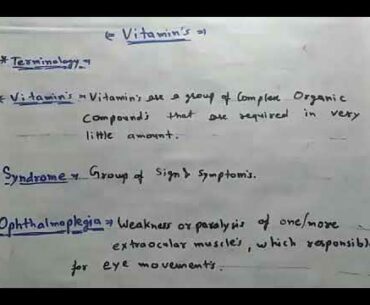 (= Vitamin's =)
* Terminology =
* Vitamin's = Vitamin's are a group of Complex Organic
Compounds that are required in very
little amount.
Syndrome = Group of Sign & Symptoms.
Ophthalmoplegia = Weakness or paralysis of one/more
extraocular muscles, which responsibl
for eye movements.